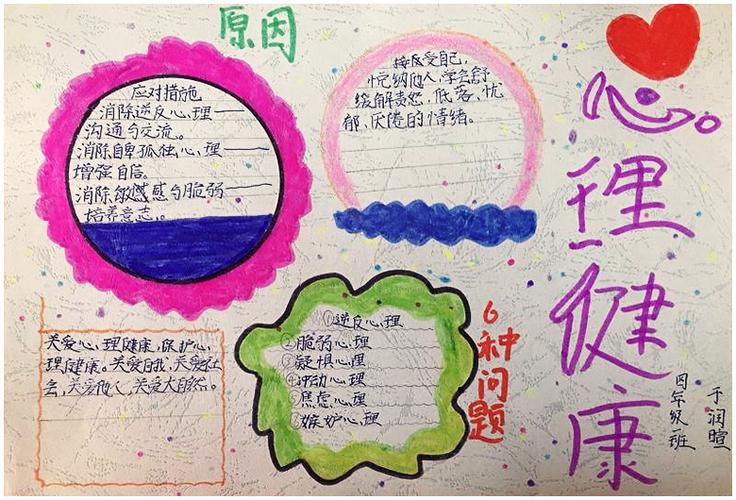 心理健康
原因
应对措施
消除逆反心理——
沟通与交流。
消除自卑孤独心理——
增强自信。
消除敏感感与脆弱——
培养意志。
接反受自己,
悦纳他人,学会舒
缓解责怨,低落、忧
郁、厌倦的情绪。
关爱心理健康,保护心
理健康。关爱自我,关爱社
会,关爱他人,关爱大自然。
①逆反心理
②脆弱心理
③疑惧心理
④冲动心理
⑤焦虑心理
⑥嫉妒心理
6种问题
四年级一班
于润暄